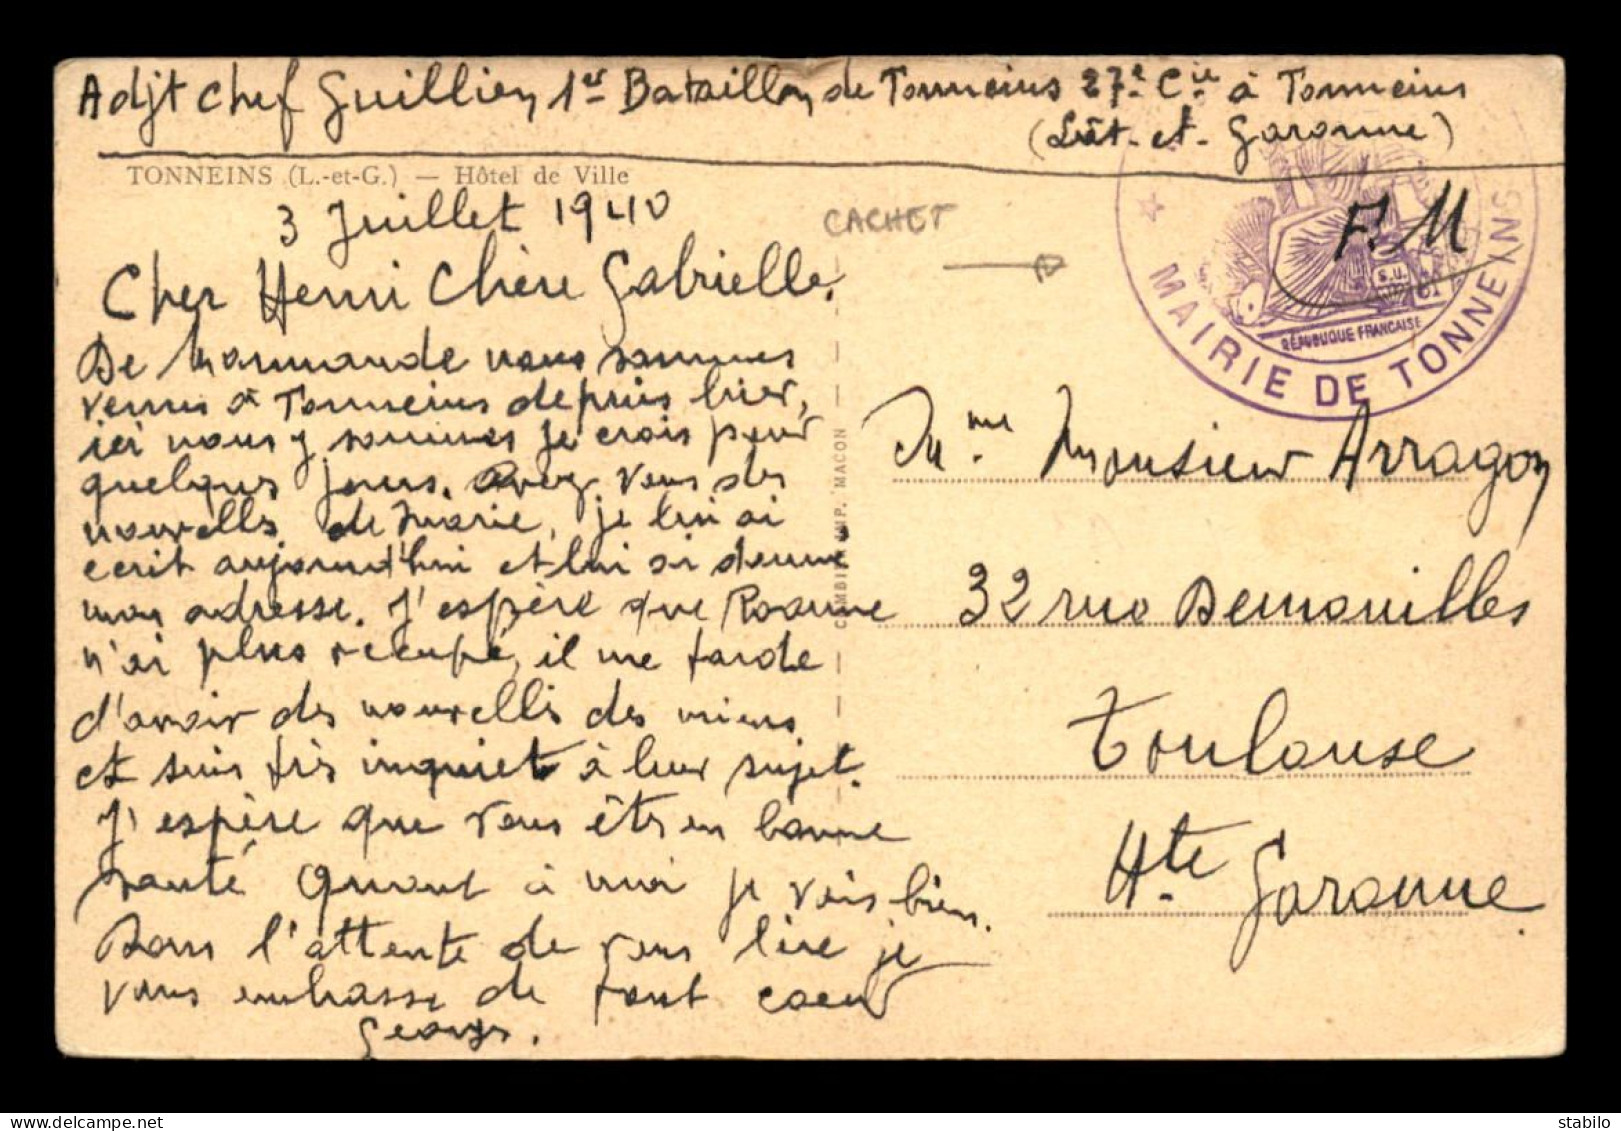 Adjt chef Guillien, 1er Bataillon de Tonneins 27e Cie à Tonneins
(Lot-et-Garonne)
TONNEINS (L.-et-G.) — Hôtel de Ville
3 Juillet 1940
CACHET
F.M
MAIRIE DE TONNEINS
RÉPUBLIQUE FRANÇAISE
Cher Henri Chère Gabrielle.
De Marmande nous sommes
venus à Tonneins depuis hier,
ici nous y sommes je crois pour
quelques jours. Avez vous des
nouvelles de Marie, je lui ai
ecrit aujourd'hui et lui ai donné
mon adresse. J'espère que Roanne
n'ai plus occupé, il me tarde
d'avoir des nouvelles des miens
et suis très inquiet à leur sujet.
J'espère que vous êtes en bonne
santé Quant à moi je vais bien.
Dans l'attente de vous lire je
vous embrasse de tout coeur
Georges.
COMBIER IMP. MACON
Mme Monsieur Arragon
32 rue Demouilles
Toulouse
Hte Garonne.
delcampe.net
stabilo